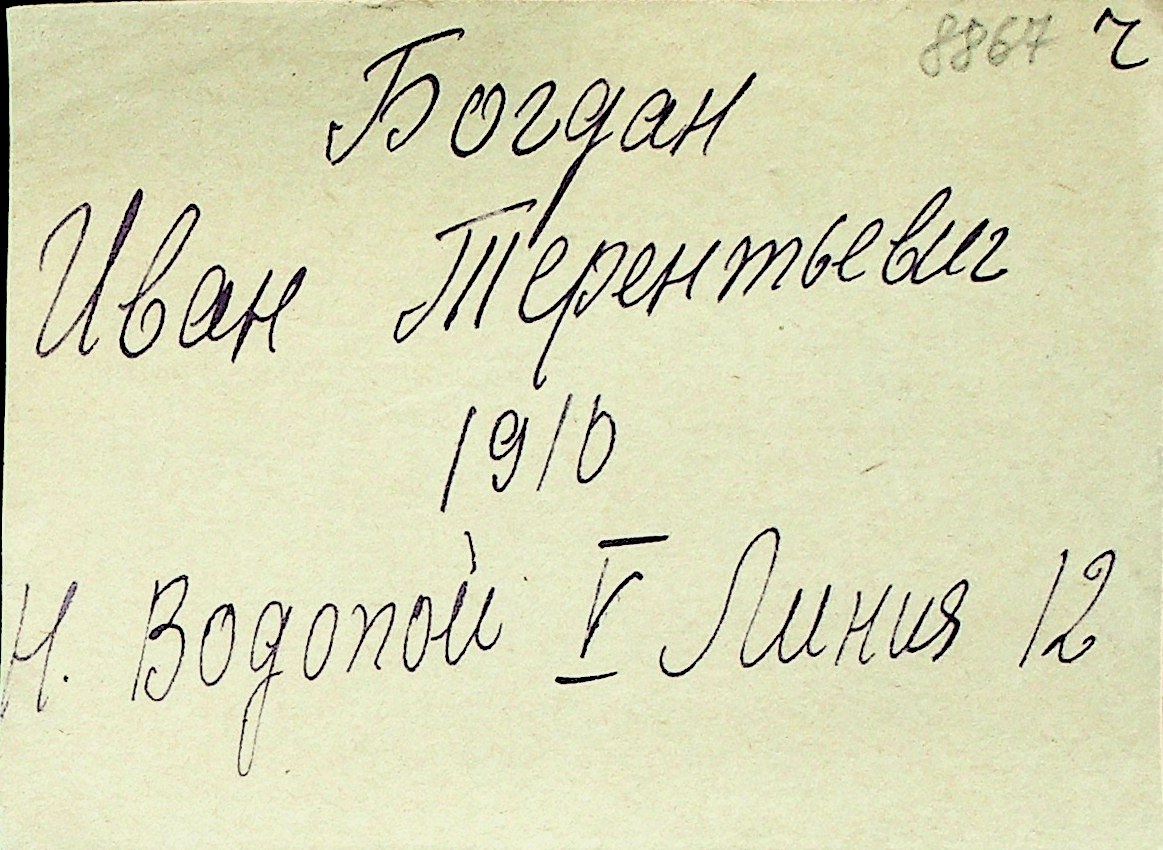 8867 ч
Богдан
Иван Терентьевич
1910
Н. Водопой V Линия 12